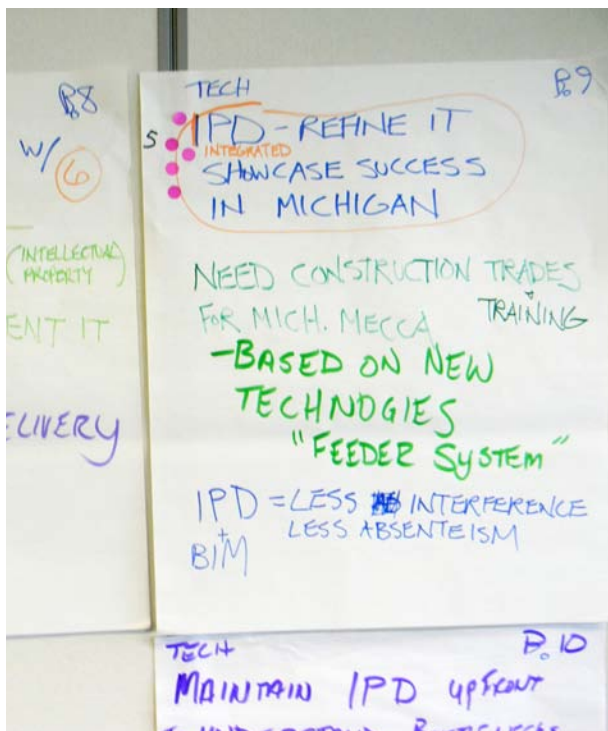 P.8
W/ 6
(INTELLECTUAL
PROPERTY)
ENT IT
ELIVERY
TECH
P.9
5
IPD - REFINE IT
INTEGRATED
SHOWCASE SUCCESS
IN MICHIGAN
NEED CONSTRUCTION TRADES
+ TRAINING
FOR MICH. MECCA
- BASED ON NEW
TECHNOGIES
"FEEDER SYSTEM"
IPD = LESS INTERFERENCE
+
BIM
LESS ABSENTEISM
TECH
P.10
MAINTAIN IPD UPFRONT